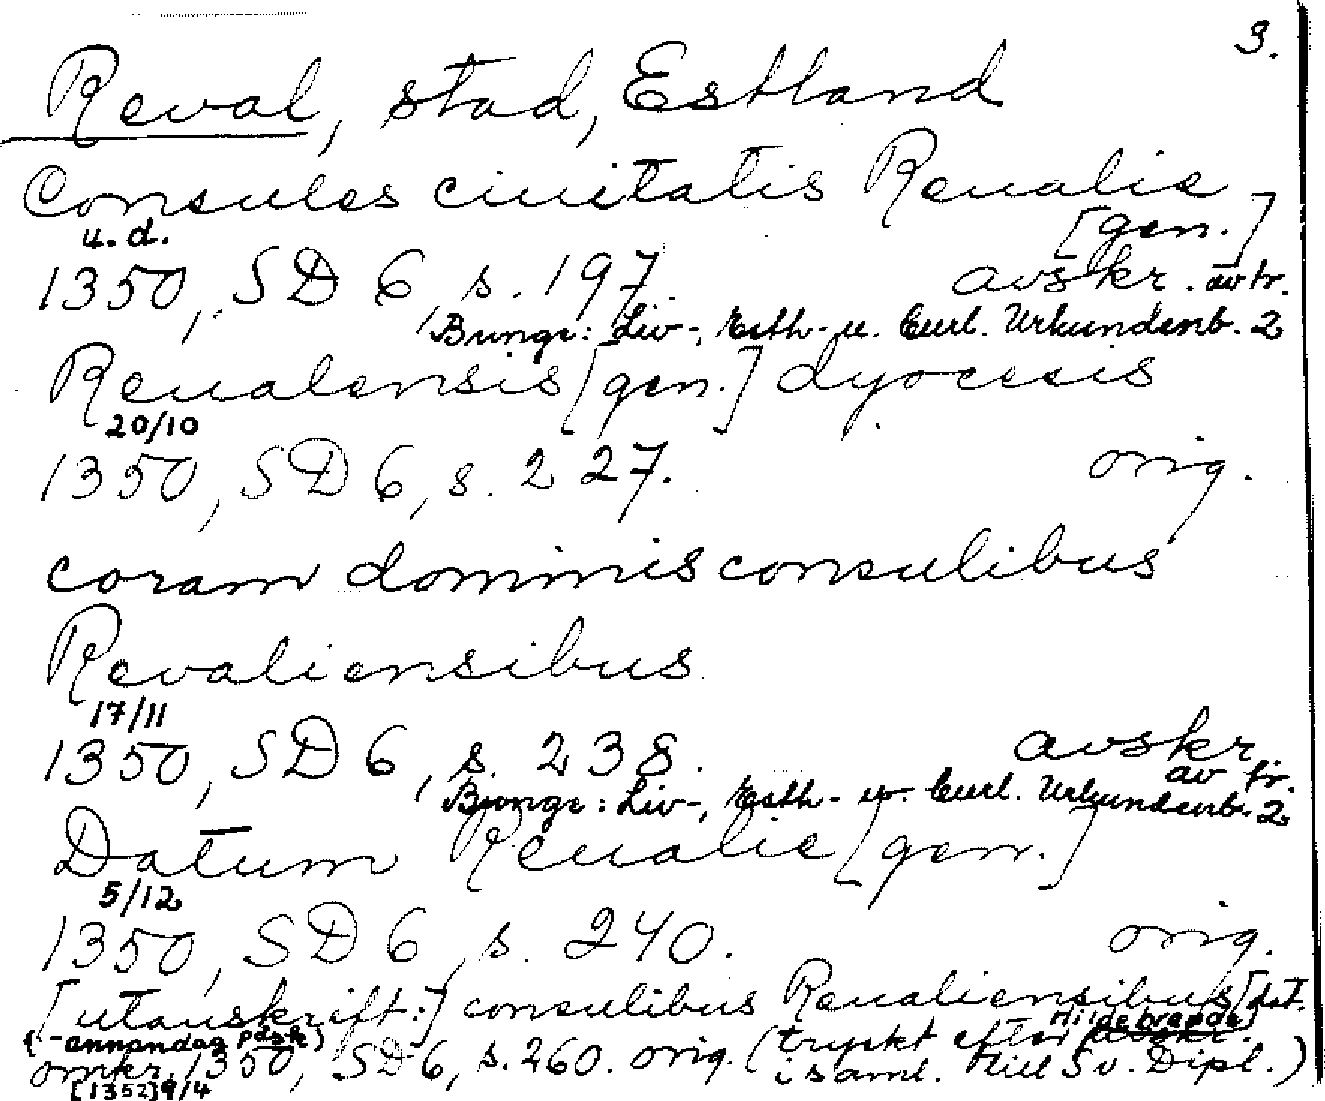 3.
Reval, stad, Estland
Consules ciuitatis Reualie
[gen.]
u. d.
1350, SD 6, s. 197. avskr. av tr.
Bunge: Liv-, Esth- u. Curl. Urkundenb. 2
Reualensis [gen.] dyocesis
20/10
1350, SD 6, s. 227. orig.
coram dominis consulibus
Revaliensibus
17/11
1350, SD 6, s. 238. avskr.
av tr.
Bunge: Liv-, Esth- u. Curl. Urkundenb. 2
Datum Reualie [gen.]
5/12
1350, SD 6, s. 240. orig.
[utanskrift:] consulibus Reualiensibus [dat.
(-annandag påsk) Hildebrands]
omkr. 1350, SD 6, s. 260. orig. (tryckt efter avskr.
[1352] 9/4 i saml. till Sv. Dipl.)